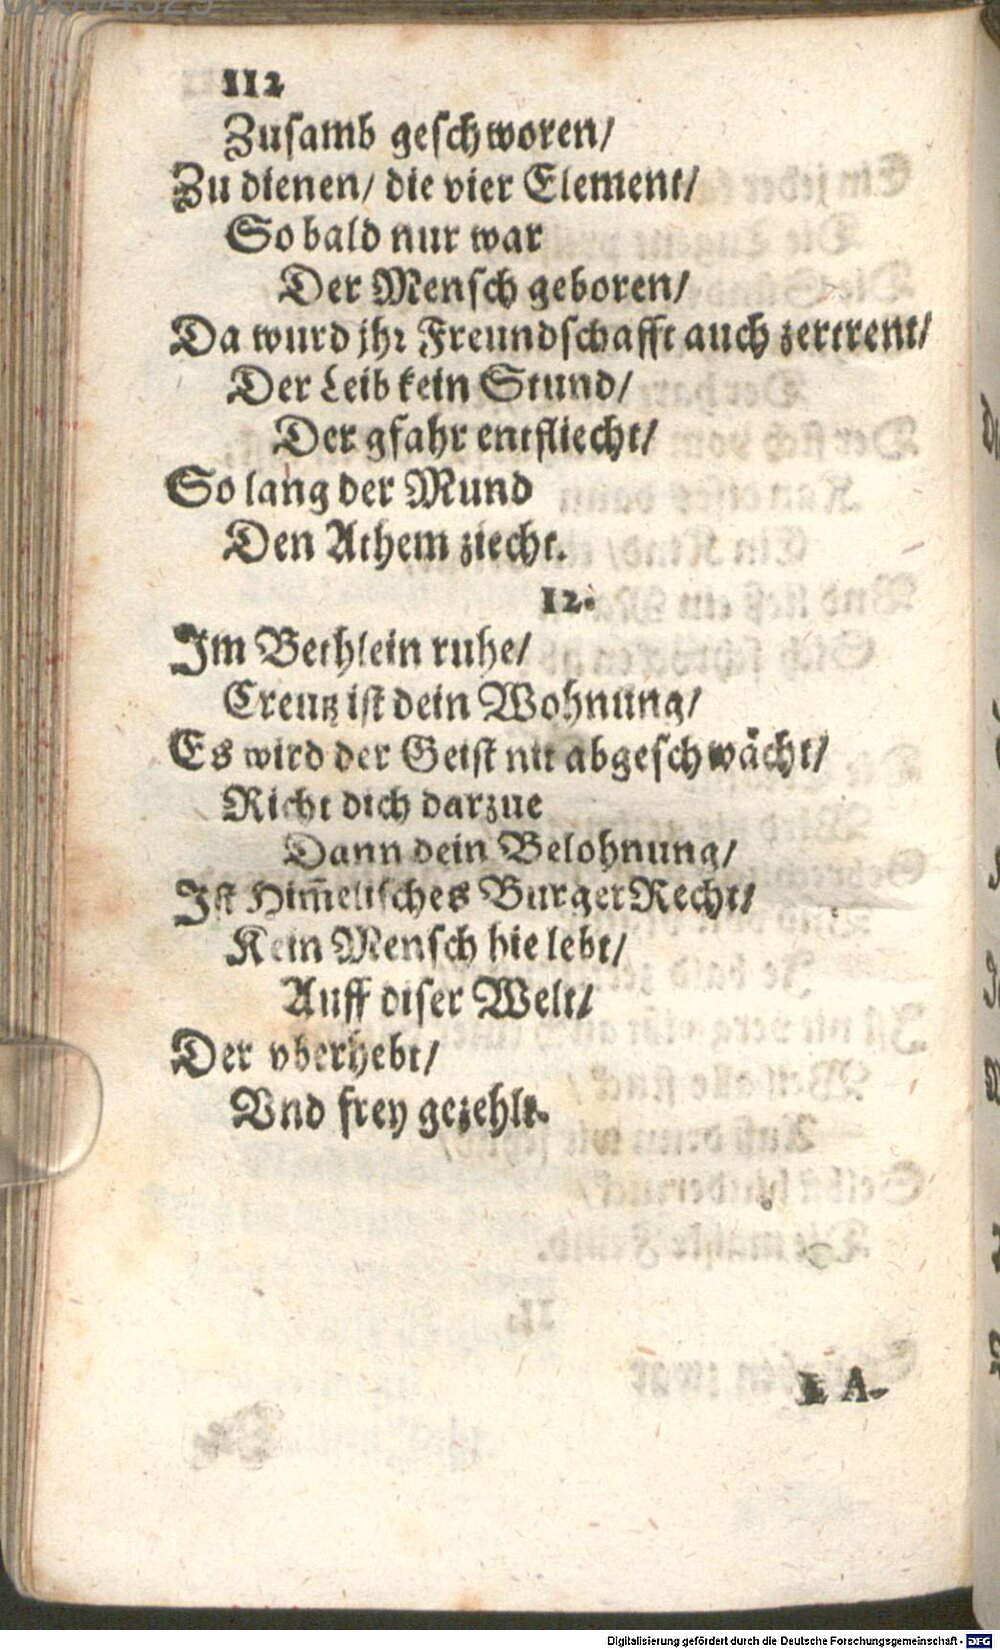 112
Zusamb geschworen/
Zu dienen/ die vier Element/
So bald nur war
Der Mensch geboren/
Da wurd jhr Freundschafft auch zertrent/
Der Leib kein Stund/
Der gfahr entfliecht/
So lang der Mund
Den Athem ziecht.
12.
Im Bethlein ruhe/
Creutz ist dein Wohnung/
Es wird der Geist nit abgeschwächt/
Richt dich darzue
Dann dein Belohnung/
Ist Him̃elisches Burger Recht/
Kein Mensch hie lebt/
Auff diser Welt/
Der vberhebt/
Vnd frey gezehlt.
L A-
Digitalisierung gefördert durch die Deutsche Forschungsgemeinschaft - DFG